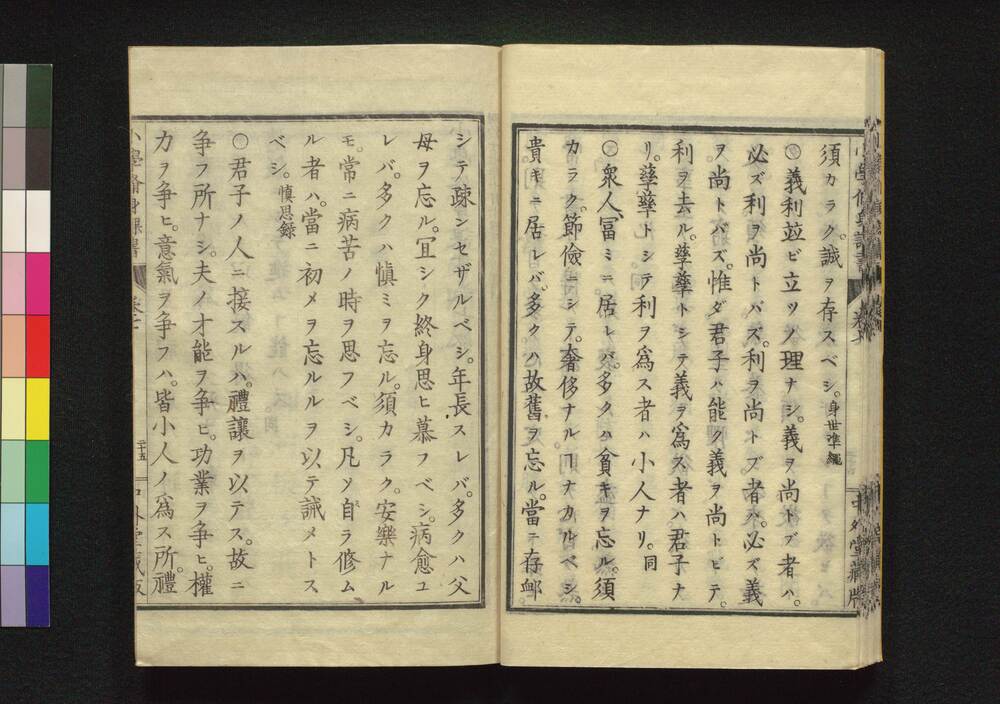 須カラク誠ヲ存スベシ。身世準繩
○義利並ビ立ツノ理ナシ。義ヲ尚トブ者ハ。
必ズ利ヲ尚トバズ。利ヲ尚トブ者ハ。必ズ義
ヲ尚トバズ。惟ダ君子ハ能ク義ヲ尚トビテ。
利ヲ去ル。孳孳トシテ義ヲ爲ス者ハ。君子ナ
リ。孳孳トシテ利ヲ爲ス者ハ小人ナリ。同
○衆人冨ミニ居レバ。多クハ貧キヲ忘ル。須
カラク。節儉ニシテ。奢侈ナルヿナカルベシ。
貴キニ居レバ。多クハ故舊ヲ忘ル。當ニ存邺
シテ疎ンセザルベシ。年長スレバ。多クハ父
母ヲ忘ル。冝シク終身思ヒ慕フベシ。病愈ユ
レバ。多クハ愼ミヲ忘ル。須カラク。安樂ナル
モ。常ニ病苦ノ時ヲ思フベシ。凡ソ自ラ修ム
ル者ハ。當ニ初メヲ忘ルルヲ以テ誡メトス
ベシ。愼思錄
○君子ノ人ニ接スルハ。禮讓ヲ以テス。故ニ
爭フ所ナシ。夫ノ才能ヲ爭ヒ。功業ヲ爭ヒ。權
力ヲ爭ヒ。意氣ヲ爭フハ。皆小人ノ爲ス所。禮
二十五